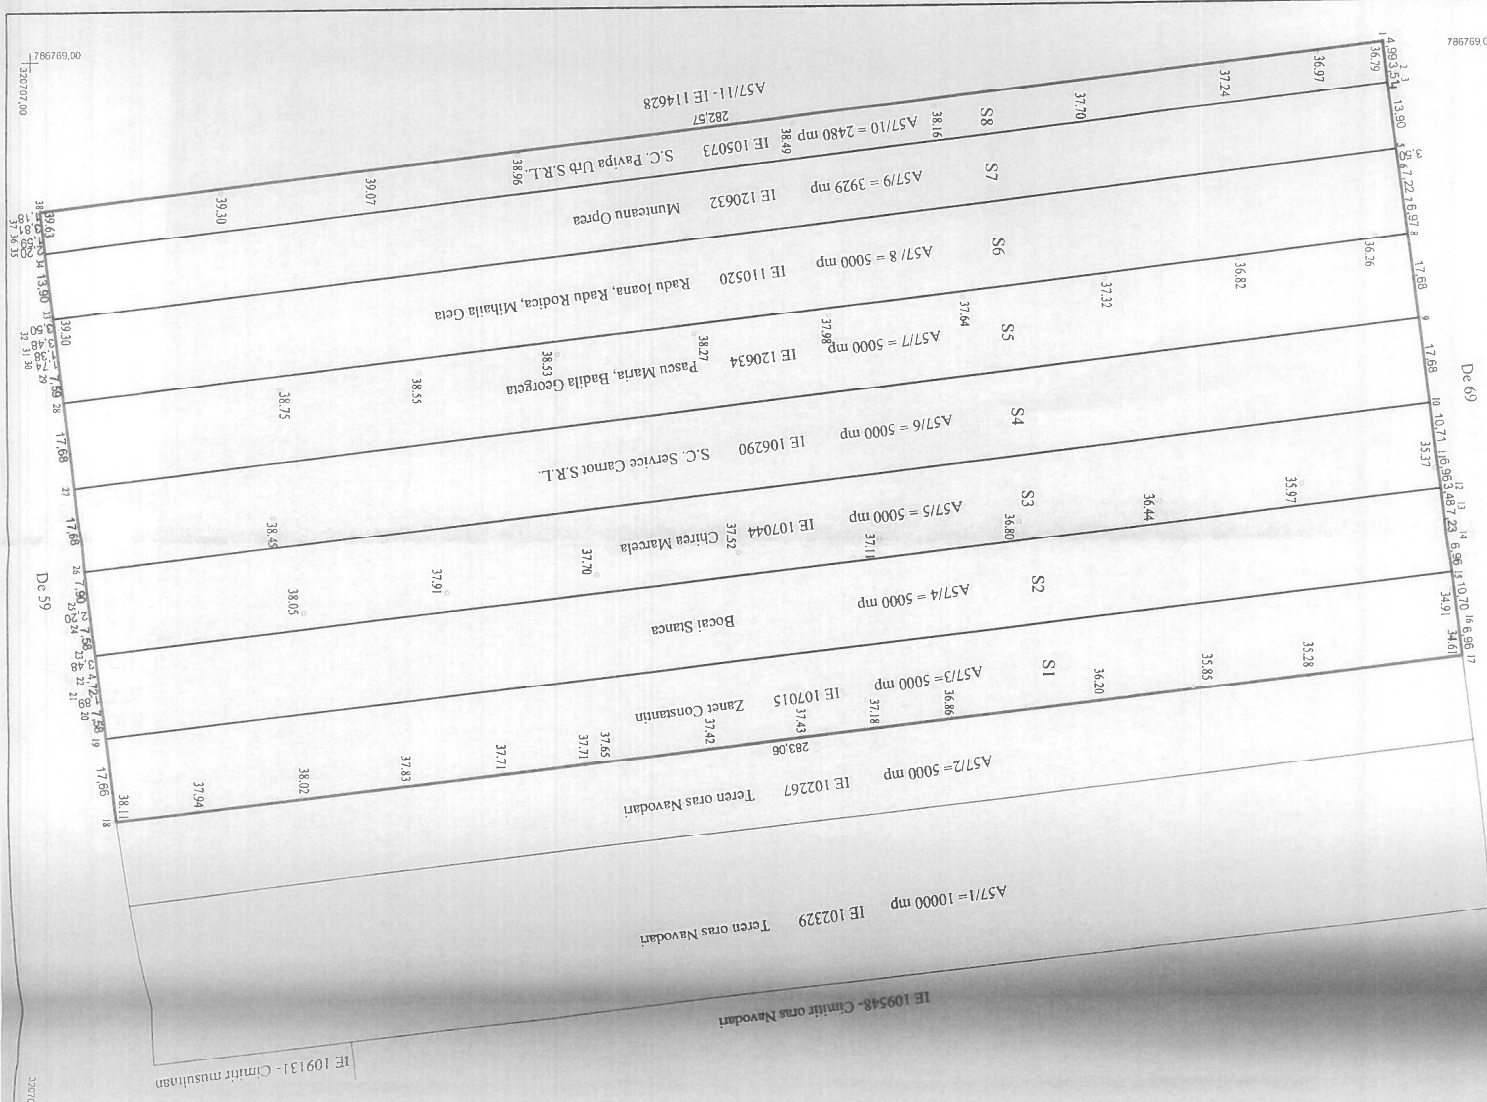 786769,00
320707,00
786769,0
A57/11- IE 114628
282,57
S8
A57/10 = 2480 mp IE 105073 S.C. Pavipa Urb S.R.L.
S7
A57/9 = 3929 mp IE 120632 Munteanu Oprea
S6
A57/ 8 = 5000 mp IE 110520 Radu Ioana, Radu Rodica, Mihaila Geta
S5
A57/7 = 5000 mp IE 120634 Pascu Maria, Badila Georgeta
S4
A57/6 = 5000 mp IE 106290 S.C. Service Carnot S.R.L.
S3
A57/5 = 5000 mp IE 107044 Chirea Marcela
S2
A57/4 = 5000 mp Bocai Stanca
S1
A57/3= 5000 mp IE 107015 Zanet Constantin
283,06
A57/2= 5000 mp IE 102267 Teren oras Navodari
A57/1= 10000 mp IE 102329 Teren oras Navodari
IE 109548- Cimitir oras Navodari
IE 109131- Cimitir musulman
De 59
De 69
36.79
36.97
37.24
37.70
38.16
38.49
38.96
39.07
39.30
39.63
39.30
36.26
36.82
37.32
37.64
37.98
38.27
38.53
38.55
38.75
35.37
35.97
36.44
36.80
37.11
37.52
37.70
37.91
38.05
38.45
34.91
34.61
35.28
35.85
36.20
36.86
37.18
37.43
37.42
37.65
37.71
37.71
37.83
38.02
37.94
38.11
1
4,99
2
3
3,51
4
13,90
5
3,50
6
7,22
7
6,97
8
17,68
9
17,68
10
10,71
11
6,96
12
3,48
13
7,23
14
6,96
15
10,70
16
6,96
17
18
17,66
19
7,58
20
21
22
4,72
3,48
23
7,58
24
25
7,90
26
17,68
27
17,68
28
7,59
29
30
31
32
3,50
33
13,90
34
35
36
37
38